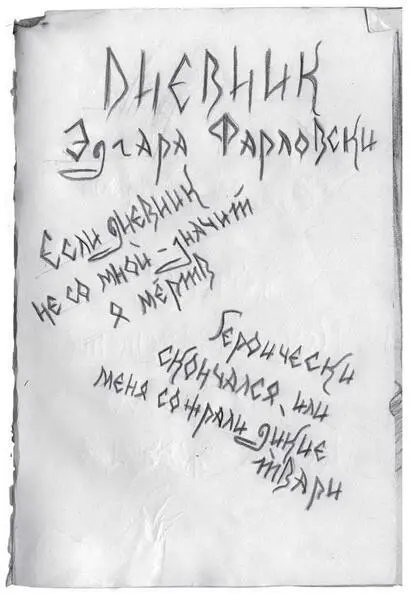 Дневник
Эдгара Фарловски
Если дневник
не со мной - значит
я мёртв
Героически
скончался, или
меня сожрали дикие
твари